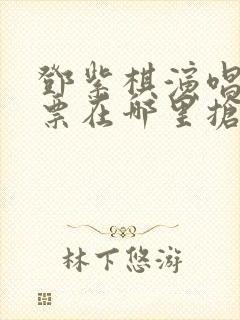 鄧紫棋演唱
票在哪里搶
林下悠游